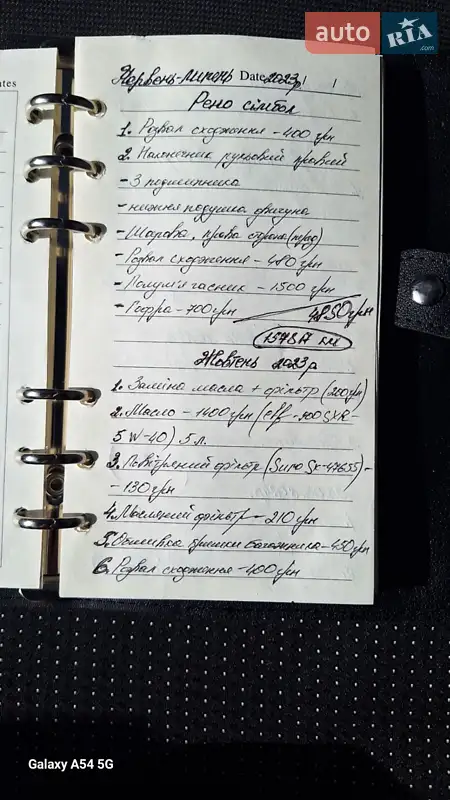 auto RIA .com
ates
Червень-липень Date 2023р/ /
Рено сімбол
1. Розвал сходження - 400 грн
2. Наконечник рульовий правий
- 3 подшипника
- нижня подушка двигуна
- Шарова, права сторона (перед)
- Розвал сходження - 480 грн
- Полум'ягасник - 1500 грн
- Гофра - 700 грн 4850 грн
Жовтень 2023р
1. Заміна масла + фільтр (200 грн)
2. Масло - 1400 грн (elf - 900 SXR-
5W-40) 5 л.
3. Повітряний фільтр -
- 130 грн
4. Масляний фільтр - 210 грн
5. Обшивка кришки багажника - 450 грн
6. Розвал сходження - 400 грн
Galaxy A54 5G